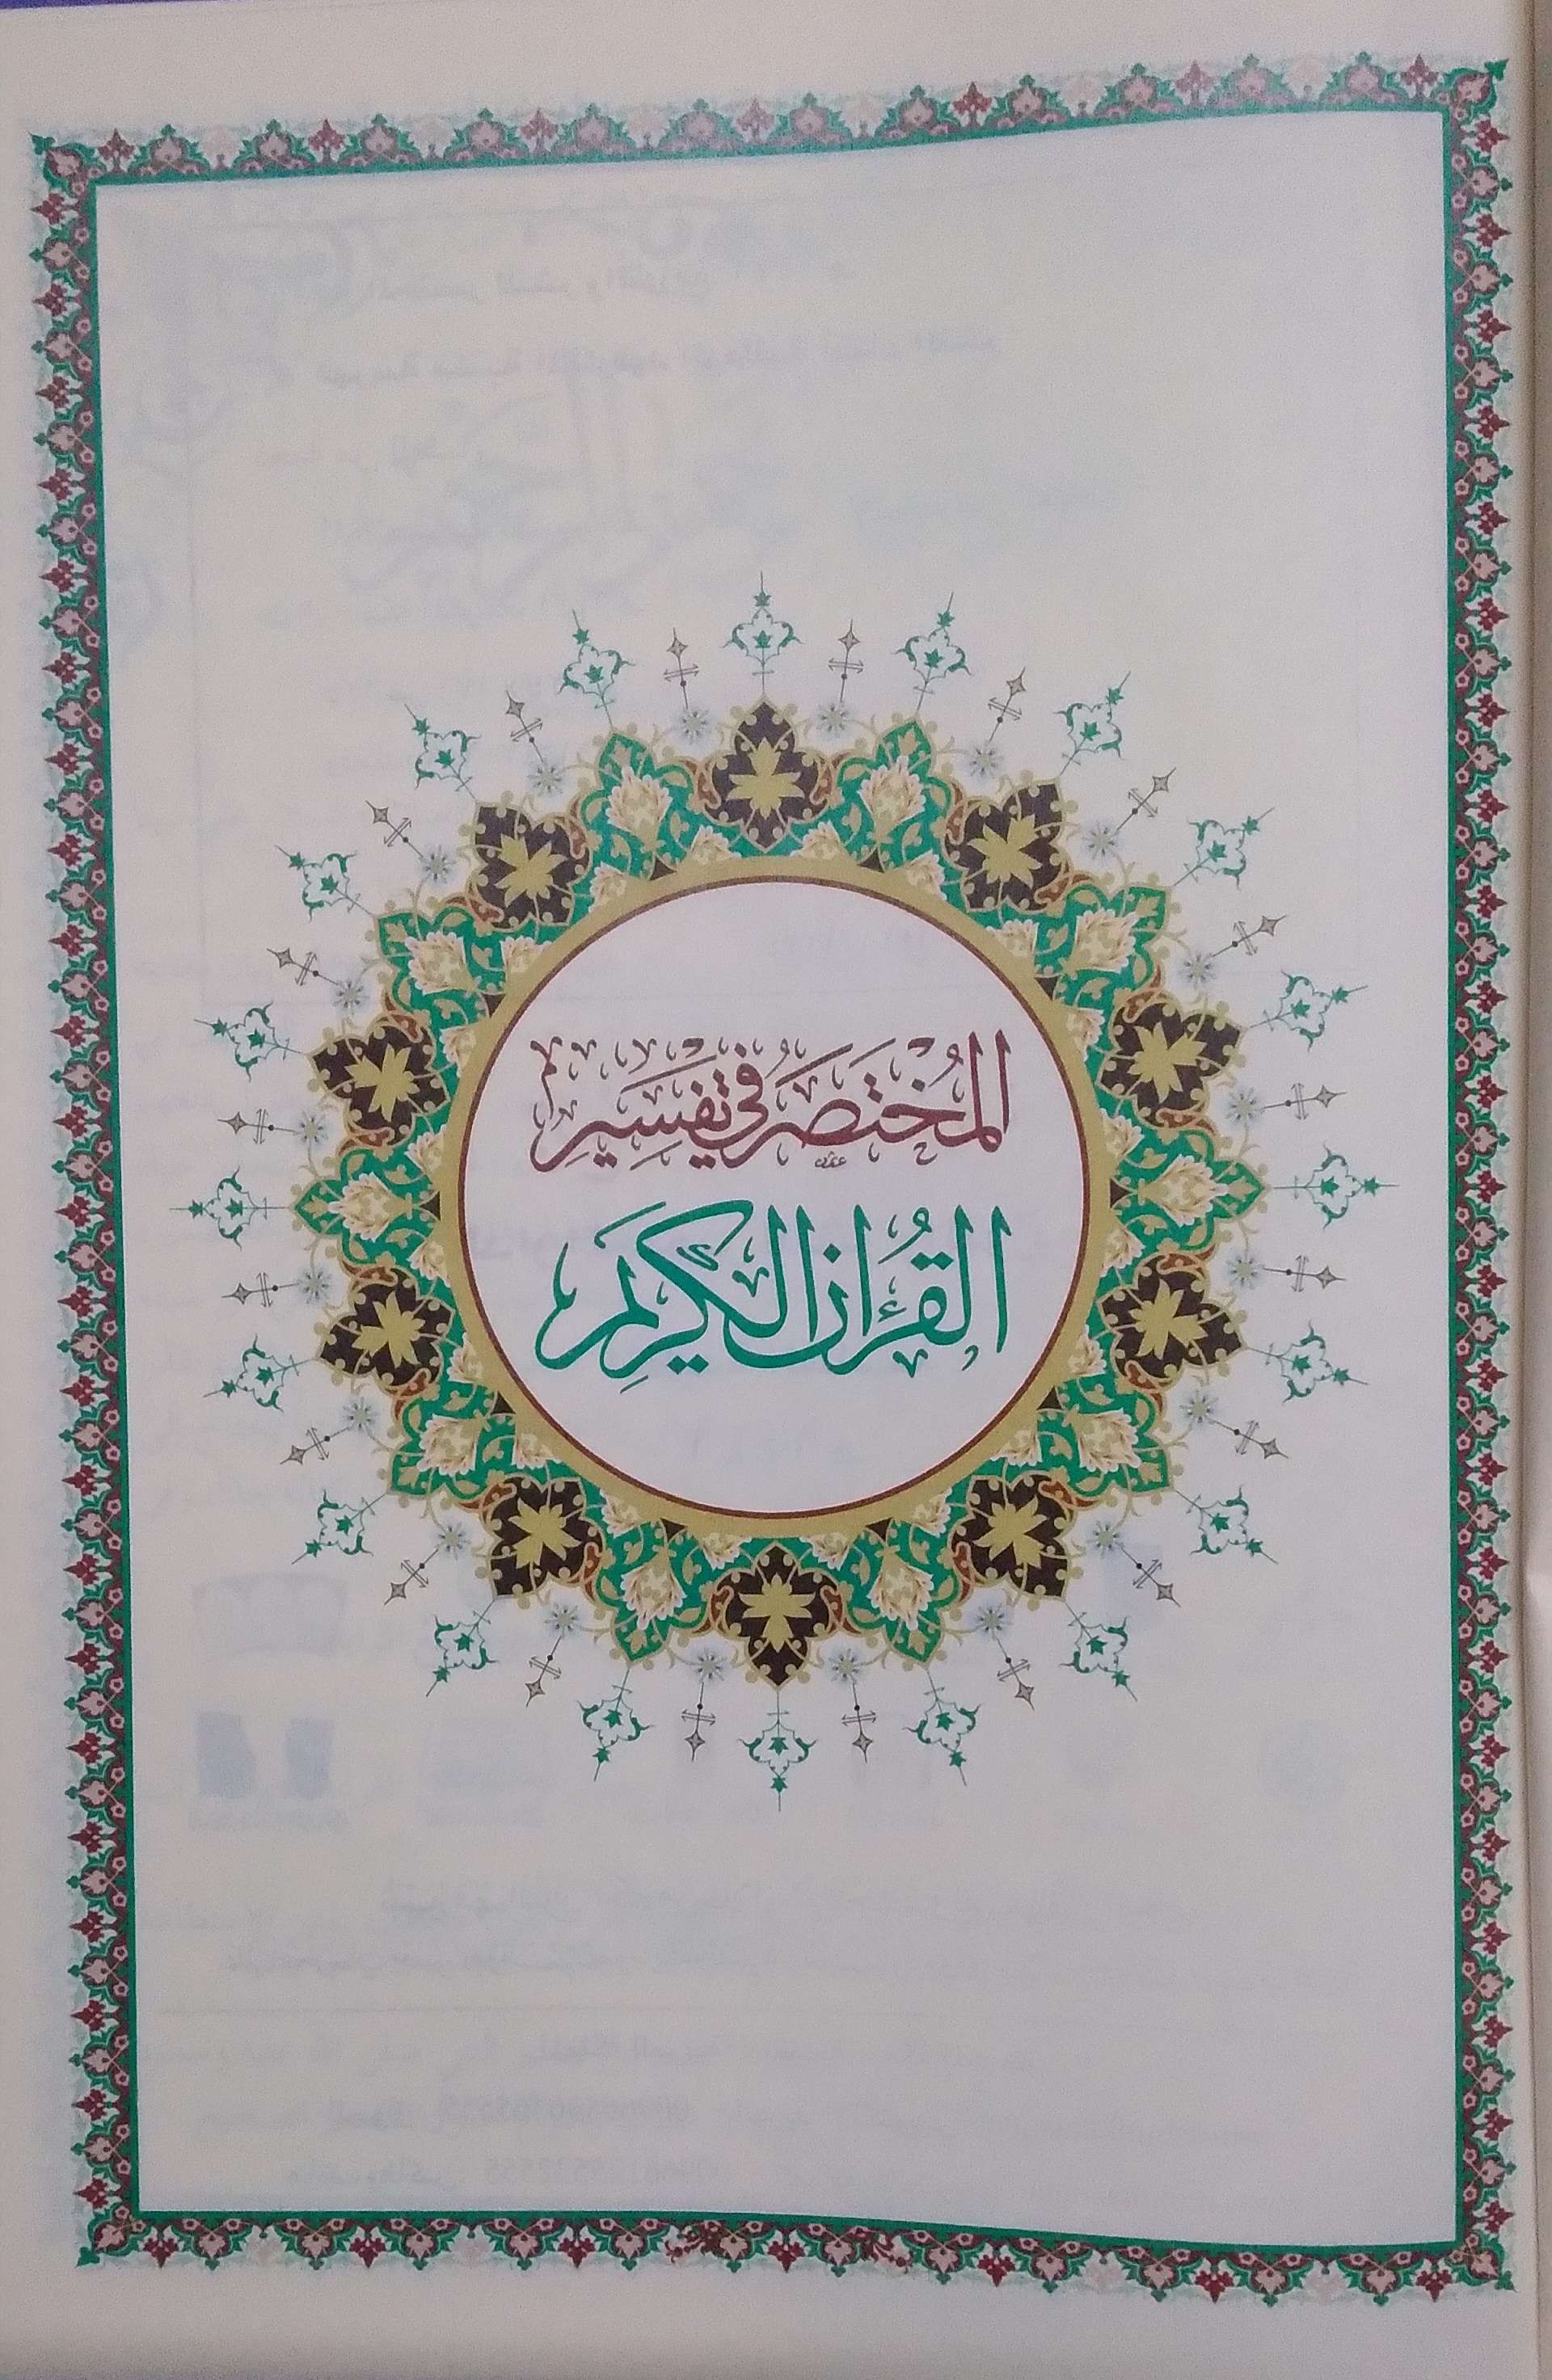 المُخْتَصَرُ فِي تَفْسِيرِ
القُرْءَانِ الكَرِيمِ